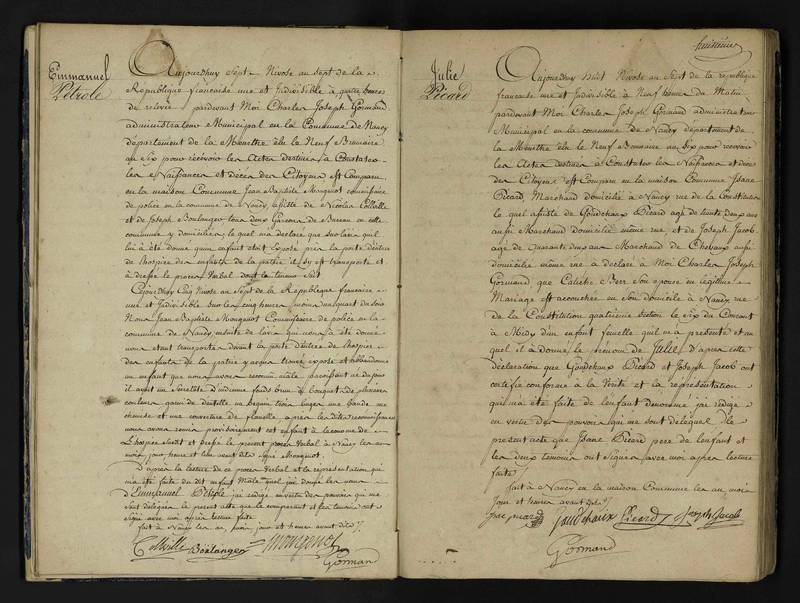 Emmanuel
Petrole
Aujourdhuy Sept Nivose an sept de la
Republique francaise une et Indivisible à quatre heures
de relevée pardevant Moi Charles Joseph Gormand
administrateur Municipal en la Commune de Nancy
departement de la Meurthe élu le Neuf Brumaire
an Six pour recevoir les Actes destinés à Constater
les Naissances et décès des Citoyens est Comparu
en la maison Commune Jean Baptiste Monginot commissaire
de police en la commune de Nancy assisté de Nicolas Collville
et de Joseph Boulanger tous deux Garcons de Bureau en cette
commune y domiciliés, lequel m'a declaré que sur l'avis qui
lui à été donné qun enfant etoit Exposé près la porte d'entrée
de l'hospice des enfants de la patrie il sy est transporté et
à dressé le procès Verbal dont la teneur suit
Cejourdhuy Cinq Nivose an Sept de la Republique francaise
une et Indivisible sur les cinq heures moins un quart du soir
Nous Jean Baptiste Monginot Commissaire de police en la
commune de Nancy ensuite de l'avis qui nous à été donné
nous etant transporté devant la porte d'entrée de l'hospice
des enfants de la patrie y avons trouvé exposé et abandonné
un enfant que nous avons reconnu male paroissant né du jour
il avoit un d'indienne fond brun à bouquets de plusieurs
couleurs garni de dentelle un beguin trois langes une bande une
chemise et une couverture de flanelle après les dites reconnaissances
nous avons remis provisoirement cet enfant à l'econome de
L'hospice Susdit et dressé le present procès Verbal à Nancy les an
mois jour, heure et lieu avant dits Signé Monginot.
D'après la lecture de ce procès Verbal et la representation qui
m'a été faite du dit enfant Male auquel j'ai donné les noms
d'Emmanuel Petrole j'ai redigé en vertu des pouvoirs qui me
sont delegués le present acte que le comparant et les temoins ont
Signé avec moi après lecture faite
fait à Nancy les an, mois jour et heures avant dits
Collville Boulanger Monginot
Gormand
huitième
Julie
Picard
Aujourdhuy huit Nivose an Sept de la republique
francaise une et Indivisible à Neuf heures du Matin
pardevant Moi Charles Joseph Gormand administrateur
Municipal en la commune de Nancy département de
la Meurthe élu le Neuf Brumaire an Six pour recevoir
les Actes destinés à Constater les Naissances et décès
des Citoyens est Comparu en la maison Commune Isaac
Picard, Marchand domicilié à Nancy rue de la Constitution
le quel assisté de Goudchaux Picard agé de trente deux ans
aussi Marchand domicilié même rue et de Joseph Jacob
agé de quarante deux ans Marchand de Chevaux aussi
domicilié même rue à declaré à Moi Charles Joseph
Gormand que Calishe Beer son epouse en legitime
Mariage est accouchée en Son domicile à Nancy rue
de la Constitution quatrieme Section le Six du Courant
à Midy d'un enfant femelle qu'il m'a presenté et au
quel il à donné le prénom de Julie d'après cette
déclaration que Goudchaux Picard et Joseph Jacob ont
certifié conforme à la Verité et la représentation
qui m'a été faite de l'enfant denommé j'ai redigé
en vertu des pouvoirs qui me sont délégués le
présent acte que Isaac Picard pere de l'enfant et
les deux temoins ont signés avec moi après lecture
faite
fait à Nancy en la maison Commune les an mois
Jour et heures avant dits
Isac picard Goudchaux Picard Joseph Jacob
Gormand